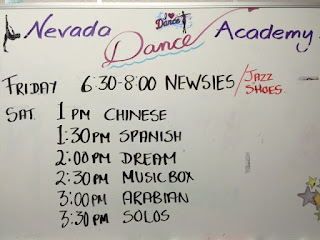 Nevada Dance Academy
I ♥ Dance
FRIDAY 6:30-8:00 NEWSIES / JAZZ SHOES
SAT. 1 PM CHINESE
1:30 PM SPANISH
2:00 PM DREAM
2:30 PM MUSIC BOX
3:00 PM ARABIAN
3:30 PM SOLOS